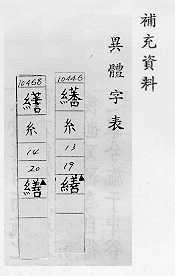 補充資料
異體字表
10446
糸
13
19
繕▲
10468
糸
14
20
繕▲